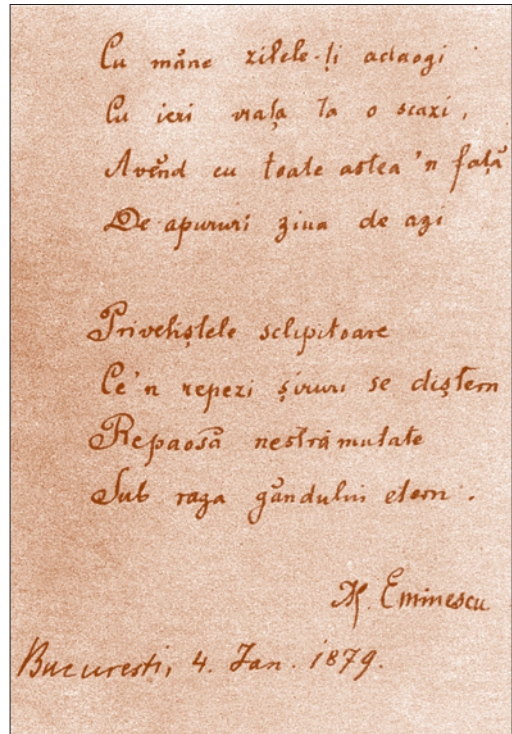 Cu mâne zilele-ți adaogi
Cu ieri viața ta o scazi,
Avênd cu toate astea 'n față
De apururi ziua de azi
Priveliștele sclipitoare
Ce 'n repezi șiruri se diștern
Repaosă nestrămutate
Sub raza gândului etern.
M. Eminescu
Bucuresti, 4. Jan. 1879.